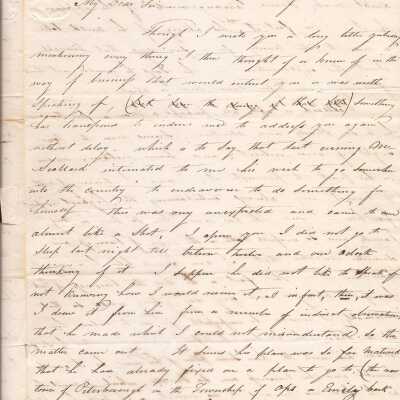 My Dear Sir
Though I wrote you a long letter yesterday
mentioning every thing I then thought of or knew of in the
way of business that would interest you or was worth
speaking of ( the ) something
has transpired to induce me to address you again
without delay which is to say that last evening Mr
intimated to me his wish to go somewhere
into the country to endeavour to do something for
himself This was very unexpected and came to me
almost like a Shot, I assure you I did not go to
Sleep last night till between twelve and one oclock
thinking of it I suppose he did not like to speak of
not knowing how I would receive it, & in fact, then, it was
I drew it from him from a number of indirect observations
that he made what I could not misunderstand. So the
matter came out It seems his plan was so far matured
that he has already fixed on a place to go to, (the new
town of Peterborough in the Township of Ops or Emily back